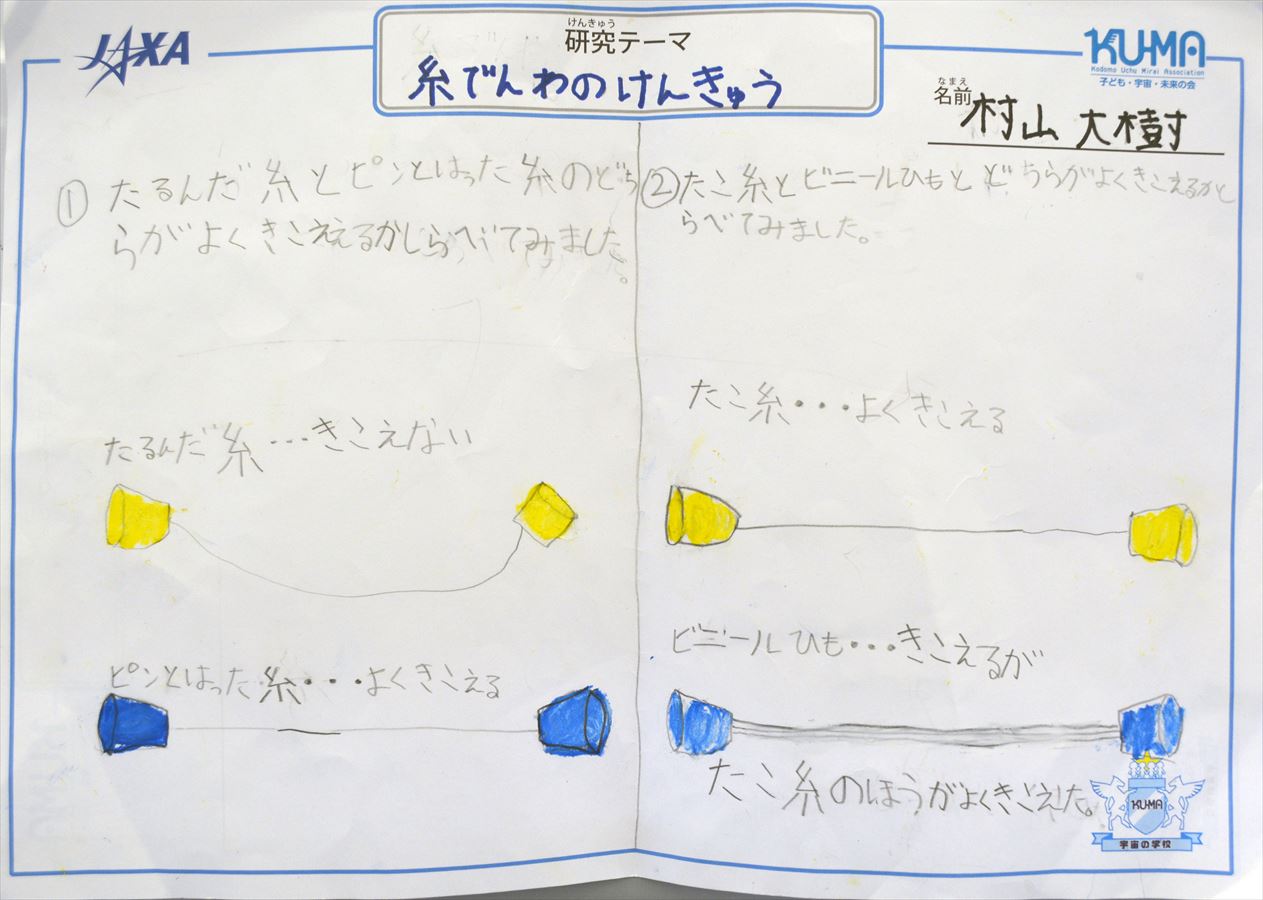 JAXA
けんきゅう
研究テーマ
糸でんわのけんきゅう
KU-MA
Kodomo Uchu Mirai Association
子ども・宇宙・未来の会
なまえ
名前
村山 大樹
① たるんだ糸とピンとはった糸のどち
らがよくきこええるかしらべてみました。
たるんだ糸・・・きこえない
ピンとはった糸・・・よくきこえる
②たこ糸とビニールひもと どちらがよくきこえるかし
らべてみました。
たこ糸・・・よくきこえる
ビニールひも・・・きこえるが
たこ糸のほうがよくきこえた。
KU-MA
宇宙の学校